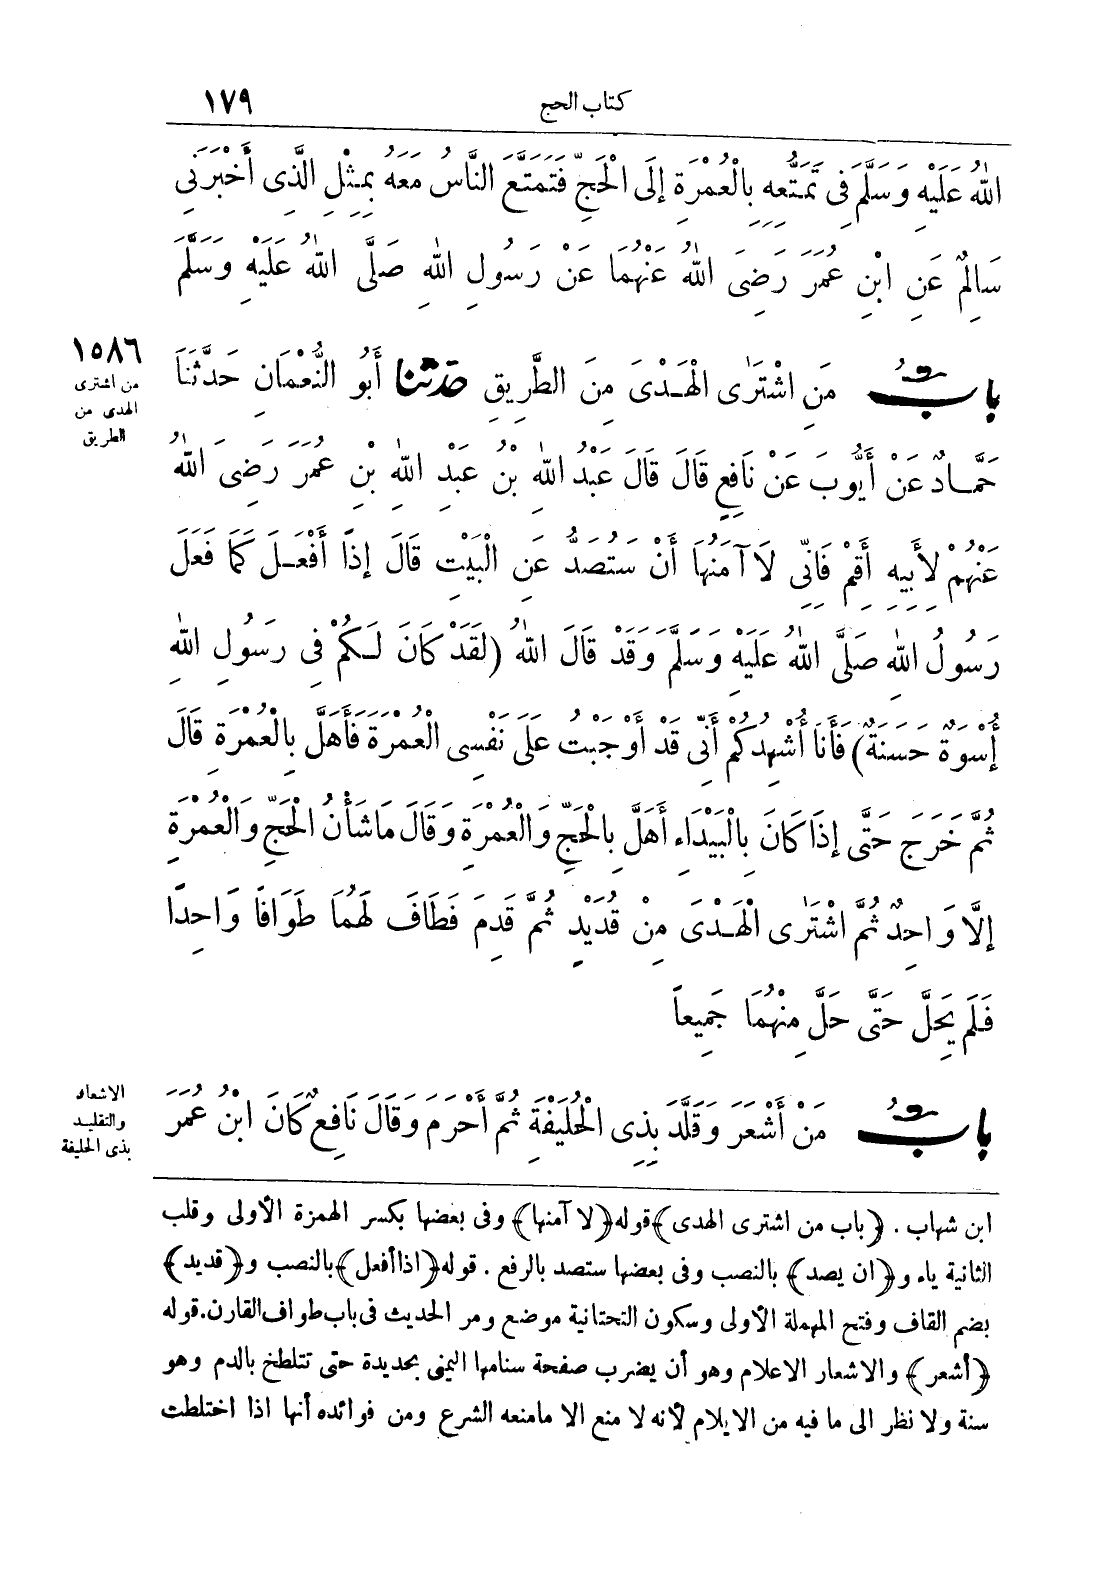 كتاب الحج ١٧٩
اللهُ عَلَيْهِ وَسَلَّمَ فِى تَمَتُّعِهِ بِالْعُمْرَةِ إِلَى الْحَجِّ فَتَمَتَّعَ النَّاسُ مَعَهُ بِمِثْلِ الَّذِى أَخْبَرَنِى
سَالِمٌ عَنِ ابْنِ عُمَرَ رَضِىَ اللهُ عَنْهُمَا عَنْ رَسُولِ اللهِ صَلَّى اللهُ عَلَيْهِ وَسَلَّمَ
١٥٨٦
من اشترى
الهدى من
الطريق
بابُ مَنِ اشْتَرَى الْهَدْىَ مِنَ الطَّرِيقِ حَدّثنا أَبُو النُّعْمَانِ حَدَّثَنَا
حَمَّادٌ عَنْ أَيُّوبَ عَنْ نَافِعٍ قَالَ قَالَ عَبْدُ اللهِ بْنُ عَبْدِ اللهِ بْنِ عُمَرَ رَضِىَ اللهُ
عَنْهُمْ لِأَبِيهِ أَقِمْ فَانِّى لَا آمَنُهَا أَنْ سَتُصَدُّ عَنِ الْبَيْتِ قَالَ إِذًا أَفْعَلَ كَمَا فَعَلَ
رَسُولُ اللهِ صَلَّى اللهُ عَلَيْهِ وَسَلَّمَ وَقَدْ قَالَ اللهُ (لَقَدْ كَانَ لَكُمْ فِى رَسُولِ اللهِ
أُسْوَةٌ حَسَنَةٌ) فَأَنَا أُشْهِدُكُمْ أَنِّى قَدْ أَوْجَبْتُ عَلَى نَفْسِى الْعُمْرَةَ فَأَهَلَّ بِالْعُمْرَةِ قَالَ
ثُمَّ خَرَجَ حَتَّى إِذَا كَانَ بِالْبَيْدَاءِ أَهَلَّ بِالْحَجِّ وَالْعُمْرَةِ وَقَالَ مَا شَأْنُ الْحَجِّ وَالْعُمْرَةِ
إِلَّا وَاحِدٌ ثُمَّ اشْتَرَى الْهَدْىَ مِنْ قُدَيْدٍ ثُمَّ قَدِمَ فَطَافَ لَهُمَا طَوَافًا وَاحِدًا
فَلَمْ يَحِلَّ حَتَّى حَلَّ مِنْهُمَا جَمِيعاً
الاشعار
والتقليد
بذى الحليفة
بابُ مَنْ أَشْعَرَ وَقَلَّدَ بِذِى الْحُلَيْفَةِ ثُمَّ أَحْرَمَ وَقَالَ نَافِعٌ كَانَ ابْنُ عُمَرَ
ابن شهاب . ﴿باب من اشترى الهدى﴾ قوله ﴿لا آمنها﴾ وفى بعضها بكسر الهمزة الأولى وقلب
الثانية ياء و ﴿ان يصد﴾ بالنصب وفى بعضها ستصد بالرفع . قوله ﴿اذا أفعل﴾ بالنصب و ﴿قديد﴾
بضم القاف وفتح المهملة الأولى وسكون التحتانية موضع ومر الحديث فى باب طواف القارن. قوله
﴿أشعر﴾ والاشعار الاعلام وهو أن يضرب صفحة سنامها اليمنى بحديدة حتى تتلطخ بالدم وهو
سنة ولا نظر الى ما فيه من الايلام لأنه لا منع الا مامنعه الشرع ومن فوائده أنها اذا اختلطت